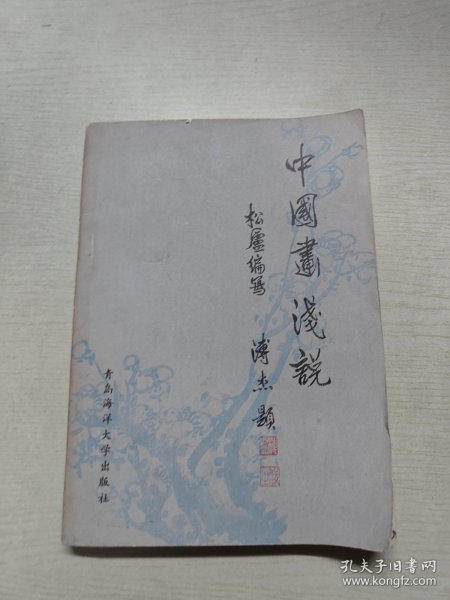 中國畫淺説
松廬编寫
溥杰题
青岛海洋大学出版社
孔夫子旧书网
www.kongfz.com